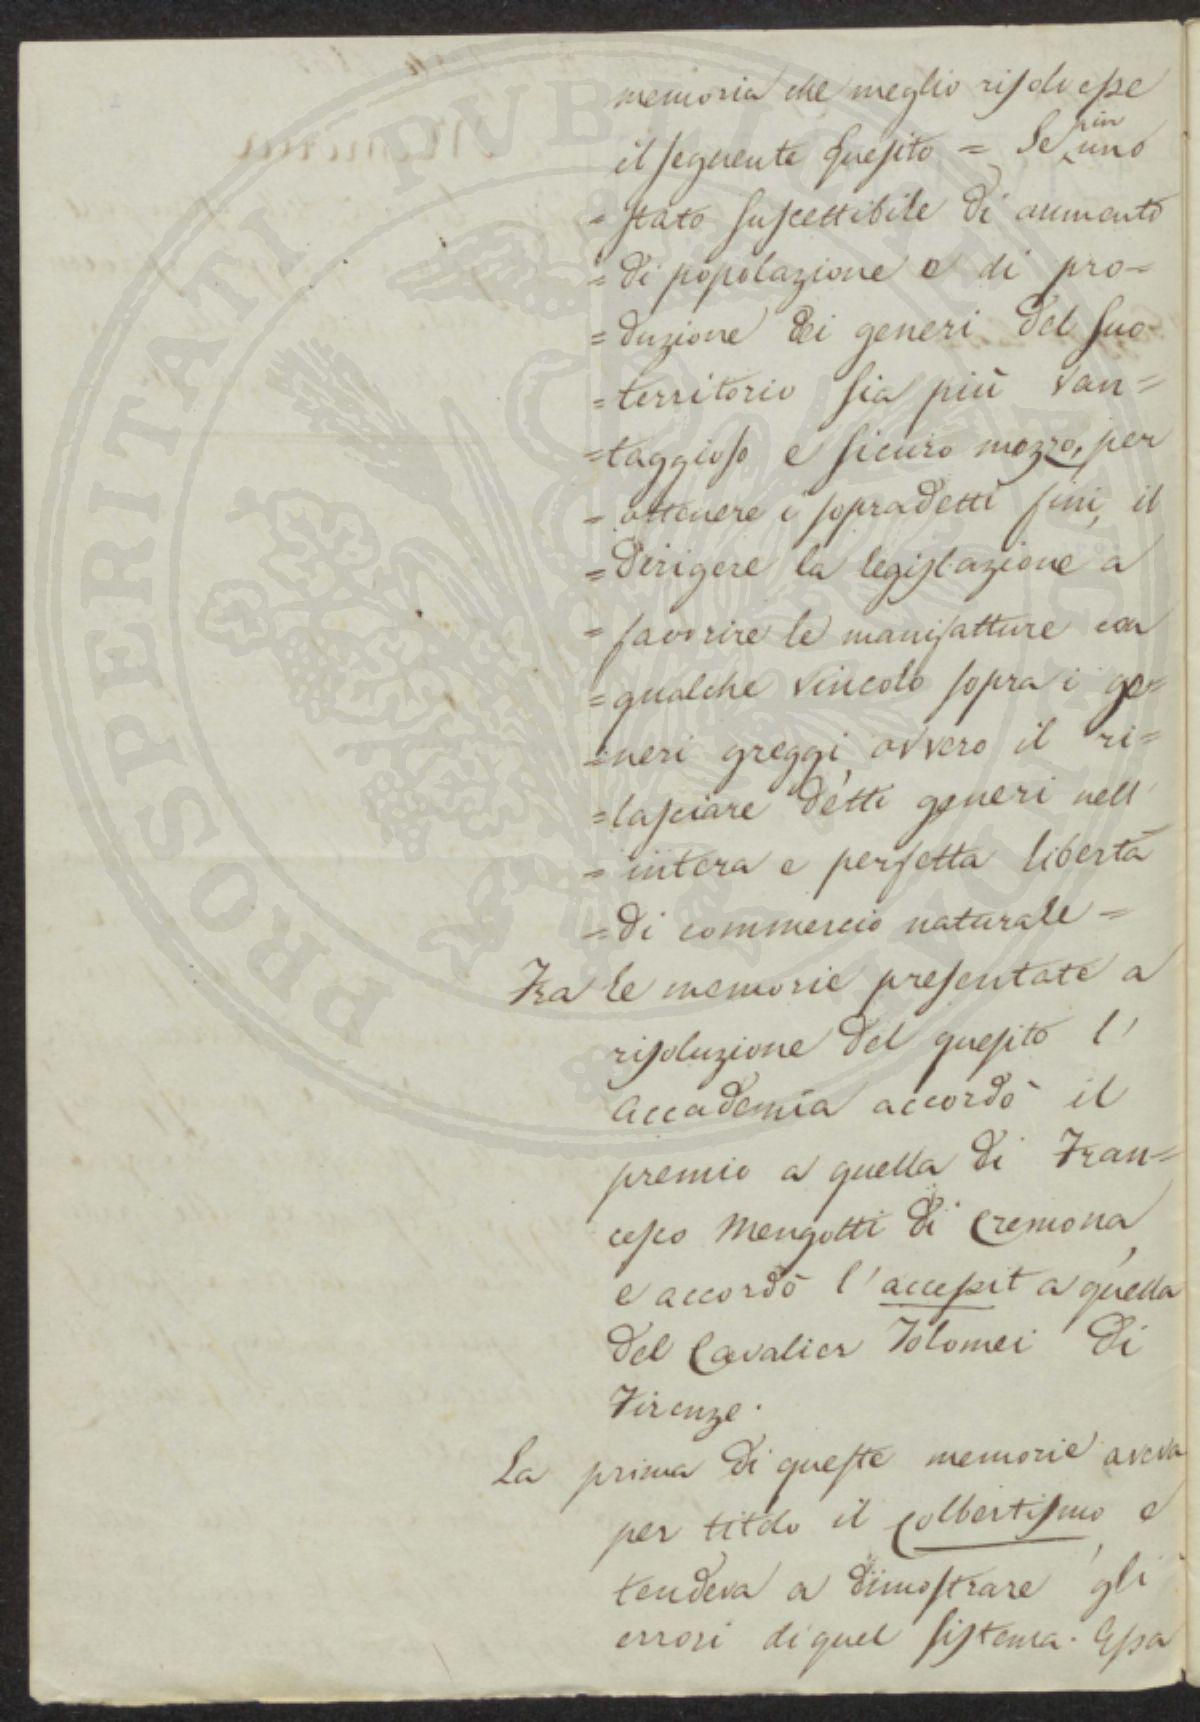 memoria che meglio risolvesse
il seguente quesito = Se in uno
= stato suscettibile di aumento
= di popolazione e di pro=
= duzione dei generi del suo
= territorio sia più van=
= taggioso e sicuro mezzo, per
= ottenere i sopradetti fini, il
= dirigere la legislazione a
= favorire le manifatture con
= qualche vincolo sopra i ge=
= neri greggi, ovvero il ri=
= lasciare detti generi nell'
= intera e perfetta libertà
= di commercio naturale =
Fra le memorie presentate a
risoluzione del quesito l'
Accademia accordò il
premio a quella di Fran=
cesco Mengotti di Cremona,
e accordò l'accessit a quella
del Cavalier Tolomei di
Firenze.
La prima di queste memorie aveva
per titolo il Colbertismo, e
tendeva a dimostrare gli
errori di quel sistema. Essa
PROSPERITATI PUBLICAE